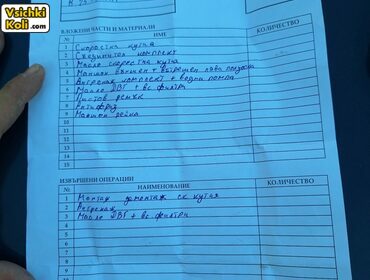 Vsichki
Koli.com
ВЛОЖЕНИ ЧАСТИ И МАТЕРИАЛИ
№ НАИМЕНОВАНИЕ КОЛИЧЕСТВО
1 Скоростна кутия
2 Съединител комплект
3 Масло скоростна кутия
4 Маншон външен + вътрешен лява полуоска
5 Ангренаж комплект + водна помпа
6 Масло ДВГ + вс филтри
7 Пистов ремък
8 Антифриз
9 рейка
10
11
12
13
14
15
ИЗВЪРШЕНИ ОПЕРАЦИИ
№ НАИМЕНОВАНИЕ КОЛИЧЕСТВО
1 Монтаж демонтаж ск кутия
2 Ангренаж
3 Масло ДВГ + вс филтри
4
5
6
7
8
9